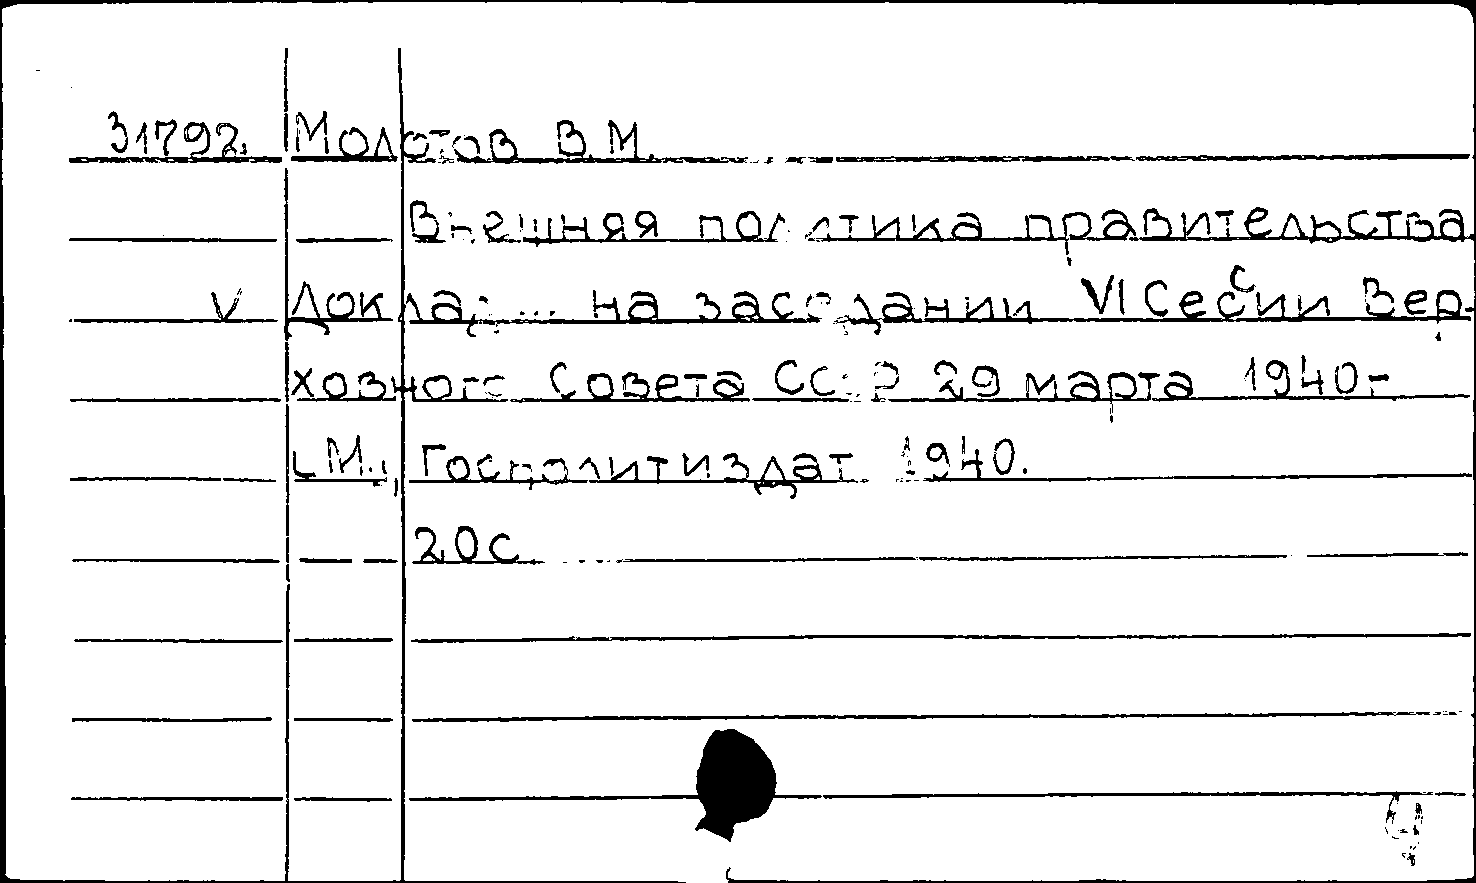 31792. Молотов В.М.
Внешняя политика правительства.
V Доклад... на заседании VI Сессии Вер-
ховного Совета СССР 29 марта 1940.-
М., Госполитиздат 1940.
20с.